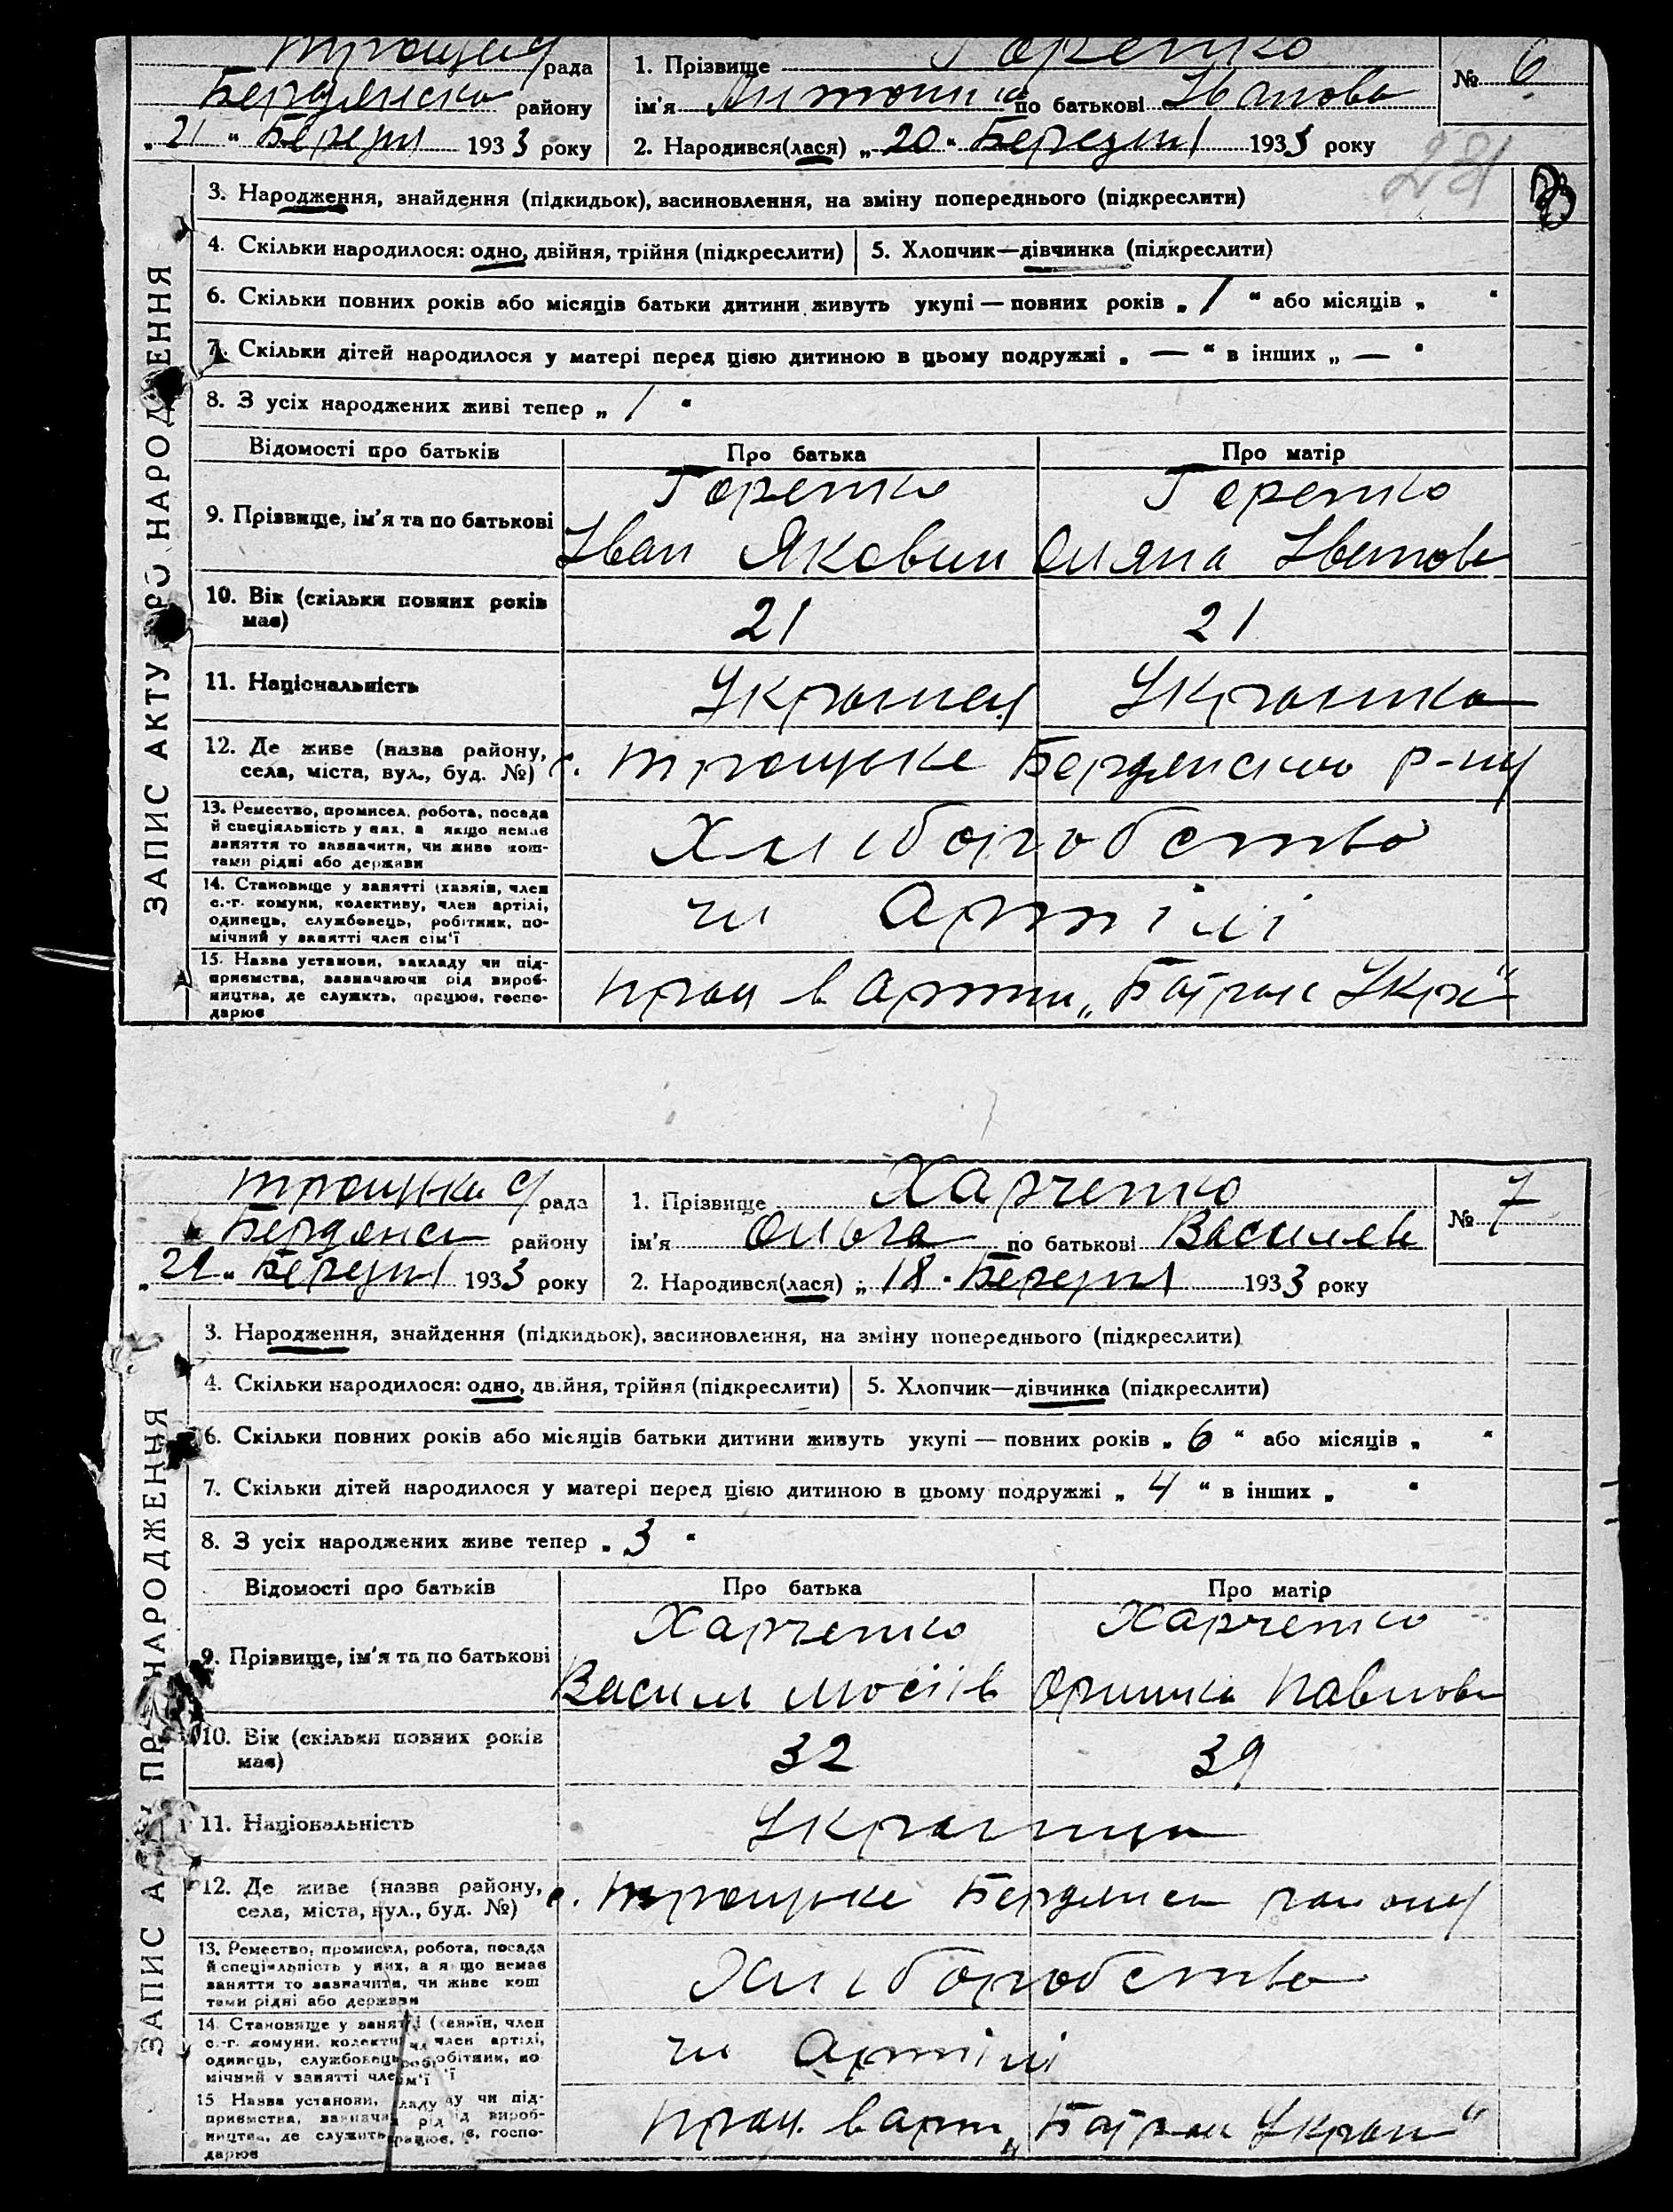 рада
Бердянсько району
„21“ Березня 1933 року
1. Прізвище Горенко
ім'я Антонина по батькові Іванова
2. Народився(лася) „20“ Березня 1933 року
№ 6
281
ЗАПИС АКТУ ПРО НАРОДЖЕННЯ
3. Народження, знайдення (підкидьок), васиновлення, на зміну попереднього (підкреслити)
4. Скільки народилося: одно, двійня, трійня (підкреслити) 5. Хлопчик—дівчинка (підкреслити)
6. Скільки повних років або місяців батьки дитини живуть укупі — повних років „1“ або місяців „ “
7. Скільки дітей народилося у матері перед цією дитиною в цьому подружжі „—“ в інших „—“
8. З усіх народжених живі тепер „1“
Відомості про батьків Про батька Про матір
Горенко Горенко
9. Прізвище, ім'я та по батькові
Іван Якович Оляна Іванов
10. Вік (скільки повних років має) 21 21
11. Національність Українец Українка
12. Де живе (назва району,
села, міста, вул., буд. №) с. Троцьке Бердянского р-ну
13. Ремество, промисел, робота, посада
й спеціяльність у них, а якщо немає
заняття то зазначити, чи живе кош-
тами рідні або держави
Хліборобство
14. Становище у занятті (хазяїн, член
с.-г. комуни, колективу, член артілі,
одинець, службовець, робітник, по-
мічний у занятті член сім'ї
чл Артілі
15. Назва установи, закладу чи під-
приємства, зазначаючи рід вироб-
ництва, де служить, працює, госпо-
дарює
прац в Артіли „Батрак Укр“
Троцька с/рада
Бердянск району
„21“ Березня 1933 року
1. Прізвище Харченко
ім'я Ольга по батькові Василев
2. Народився(лася) „18“ Березня 1933 року
№ 7
ЗАПИС АКТУ ПРО НАРОДЖЕННЯ
3. Народження, знайдення (підкидьок), засиновлення, на зміну попереднього (підкреслити)
4. Скільки народилося: одно, двійня, трійня (підкреслити) 5. Хлопчик—дівчинка (підкреслити)
6. Скільки повних років або місяців батьки дитини живуть укупі — повних років „6“ або місяців „ “
7. Скільки дітей народилося у матері перед цією дитиною в цьому подружжі „4“ в інших „ “
8. З усіх народжених живе тепер „3“
Відомості про батьків Про батька Про матір
Харченко Харченко
9. Прізвище, ім'я та по батькові
Васил Мосіїв Оришка Павлов
10. Вік (скільки повних років має) 32 39
11. Національність Українци
12. Де живе (назва району,
села, міста, вул., буд. №) с. Троцьке Бердянск району
13. Ремество, промисел, робота, посада
й спеціяльність у них, а якщо немає
заняття то зазначити, чи живе кош
тами рідні або держави
Хліборобство
14. Становище у занятті (хазяїн, член
с.-г. комуни, колективу, член артілі,
одинець, службовець, робітник, по
мічний у занятті член сім'ї
чл Артілі
15 Назва установи, закладу чи під-
приємства, зазначаючи рід вироб-
ництва, де служить, працює, госпо-
дарює
прац. в арт „Батрак Україн“